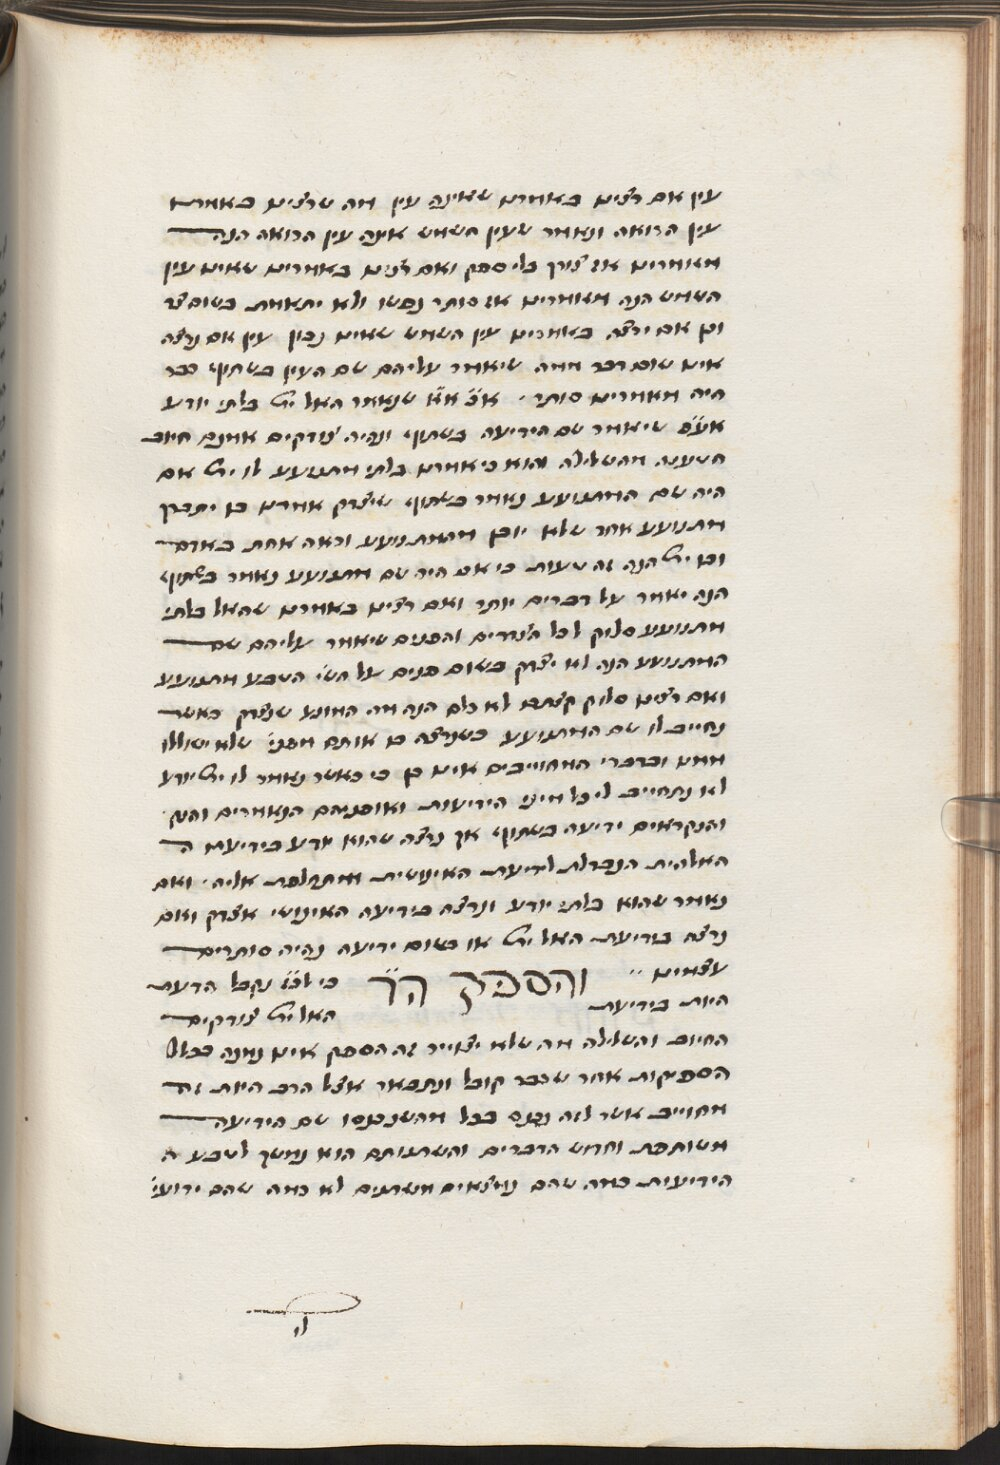 עין אם רצינו באמרנו שאינה עין מה שרצינו באמרנו
עין הרואה ונאמר שעין השמש אינה עין הרואה הנה
מאמרינו אז צודק בלי ספק ואם רצינו באמרינו שאינו עין
השמש הנה מאמרינו אז סותר נפשו ולא יתאמת בשום צד
וכן אם ירצה באמרינו עין השמש שאינו נכון עין אם נרצה
אינו שום דבר ממה שיאמר עליהם שם העין בשתוף כבר
היה מאמרינו סותר ׳ שנאמר האל ית׳ בלתי יודע
אע״פ שיאמר שם הידיעה בשתוף ונהיה צודקים אמנם חיוב
הטענה מהשלילה והוא כי אמרנו בלתי מתנועע לו ית׳ אם
היה שם המתנועע נאמר בשתוף שיצדק אמרנו כן יתברך
מתנועע אחר שלא יובן מהמתנועע וראה אחת באדם
וכן ית׳ הנה זה טעות כי אם היה שם מתנועע נאמר בשתוף
הנה יאמר על דברים יותר ואם רצינו באמרנו שהאל בלתי
מתנועע סלוק לכל הצדדים והפנים שיאמר עליהם שם
המתנועע הנה לא יצדק בשום פנים על השי׳ הטבע מתנועע
ואם רצינו סלוק קצתם לא כלם הנה מה המונע שנצדק כאשר
נחייב לו שם המתנועע כשנרצה בו אותם מפני׳ שלא ישוללו
ממנו ובדברי המחוייבים אינו כן כי כאשר נאמר לו ית׳ יודע
לא נתחייב לו כל מיני הידיעות ואופניהם הנאמרים
והנקראים ידיעה בשתוף אך נרצה שהוא יודע בידיעתו ה
האלהית הנבדלת לידיעת האינושית ומתחלפת אליה ׳ ואם
נאמר שהוא בלתי יודע ונרצה בידיעה האינושי׳ אצדק ואם
נרצה בידיעת האל ית׳ או בשום ידיעה נהיה סותרים
עצמינו ״ והספק הד׳ כי נקבל הדעת
היות בידיעת האל ית׳ צודקים
החיוב והשלילה מה שלא יצוייר זה הספק אינו נמנה בכלל
הספיקות אחר שכבר קובל ונתבאר אצל הרב היות זה
מחוייב אשר לזה נכנס בכל מהשנכנסו שם הידיעה
משותפת וחדוש הדברים והשתנותם הוא נמשך לטבע ה
הידיעות כמה שהם נמצאים משתנים לא כמה שהם ידועי׳